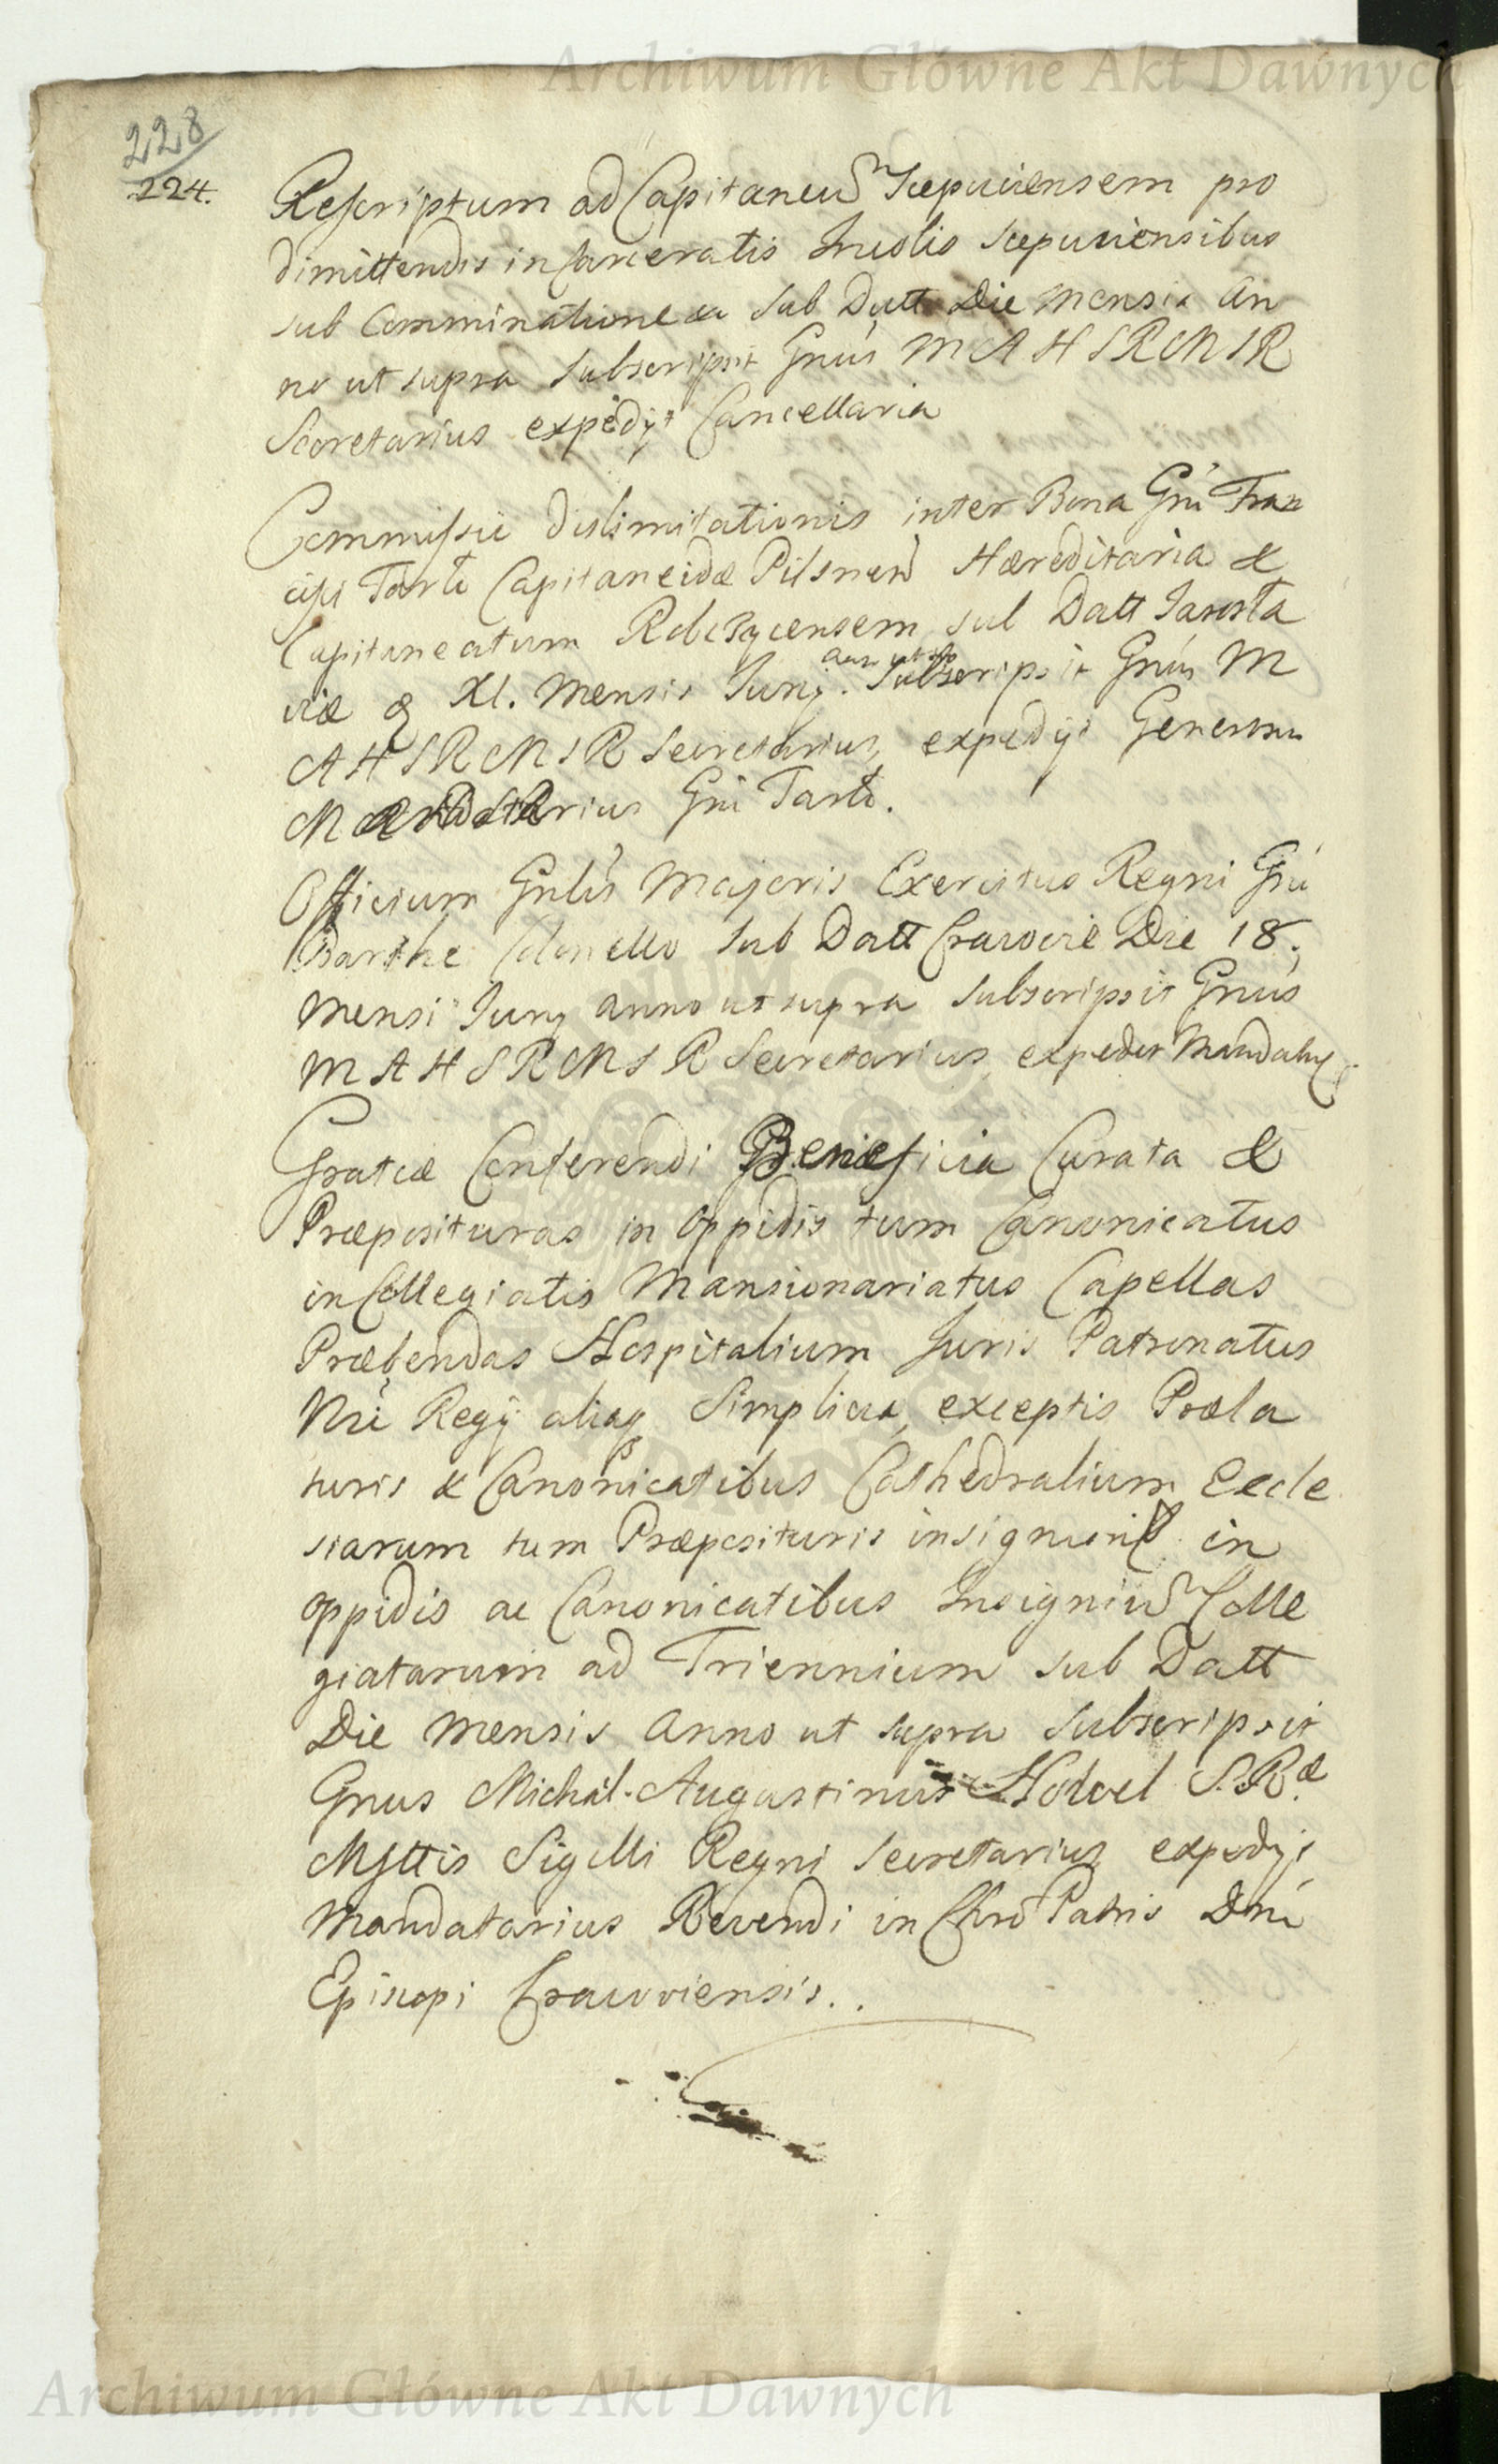 Archiwum Główne Akt Dawnych
228
224.
Rescriptum ad Capitaneum Scepusiensem pro
dimittendis incarceratis Incolis Scepusiensibus
sub Comminatione sub Datt Die Mensis An
no ut supra Subscripsit Gnus M A H S R M S R
Secretarius expedyt Cancellaria
Commissio dislimitationis inter Bona Gni Fran
cisci Tarło Capitaneidæ Pilsnen Hæreditaria &
Capitaneatum sub Datt Jarosła
viæ XI. Mensis Juny. Anno ut sto Subscripsit Gnus M
A H S R M S R Secretarius, expedyt Generosus
Gni Tarło.
Officium Gnlis Majoris Exercitus Regni Gno
Barthe Colonello sub Datt Cracoviæ Die 18.
Mensis Juny anno ut supra Subscripsit Gnus
M A H S R M S R Secretarius, expedit
Gratiæ Conferendi Beneficia Curata &
Præposituras in Oppidis tum Canonicatus
in Collegiatis Mansionariatus Capellas
Præbendas Hospitalium Juris Patronatus
Nri Regy aliaq Simplicia, exceptis Præla
turis & Canonicatibus Cathedralium Eccle
siarum tum Præposituris in
oppidis ac Canonicatibus Insignium Colle
giatarum ad Triennium sub Datt
Die Mensis Anno ut supra Subscripsit
Gnus Michal Augustinus Hodvel S. R.æ
Mjttis Sigilli Regni Secretarius expedyt
Mandatarius Revendi in Chro Patris Dni
Episcopi Cracoviensis..
Archiwum Główne Akt Dawnych